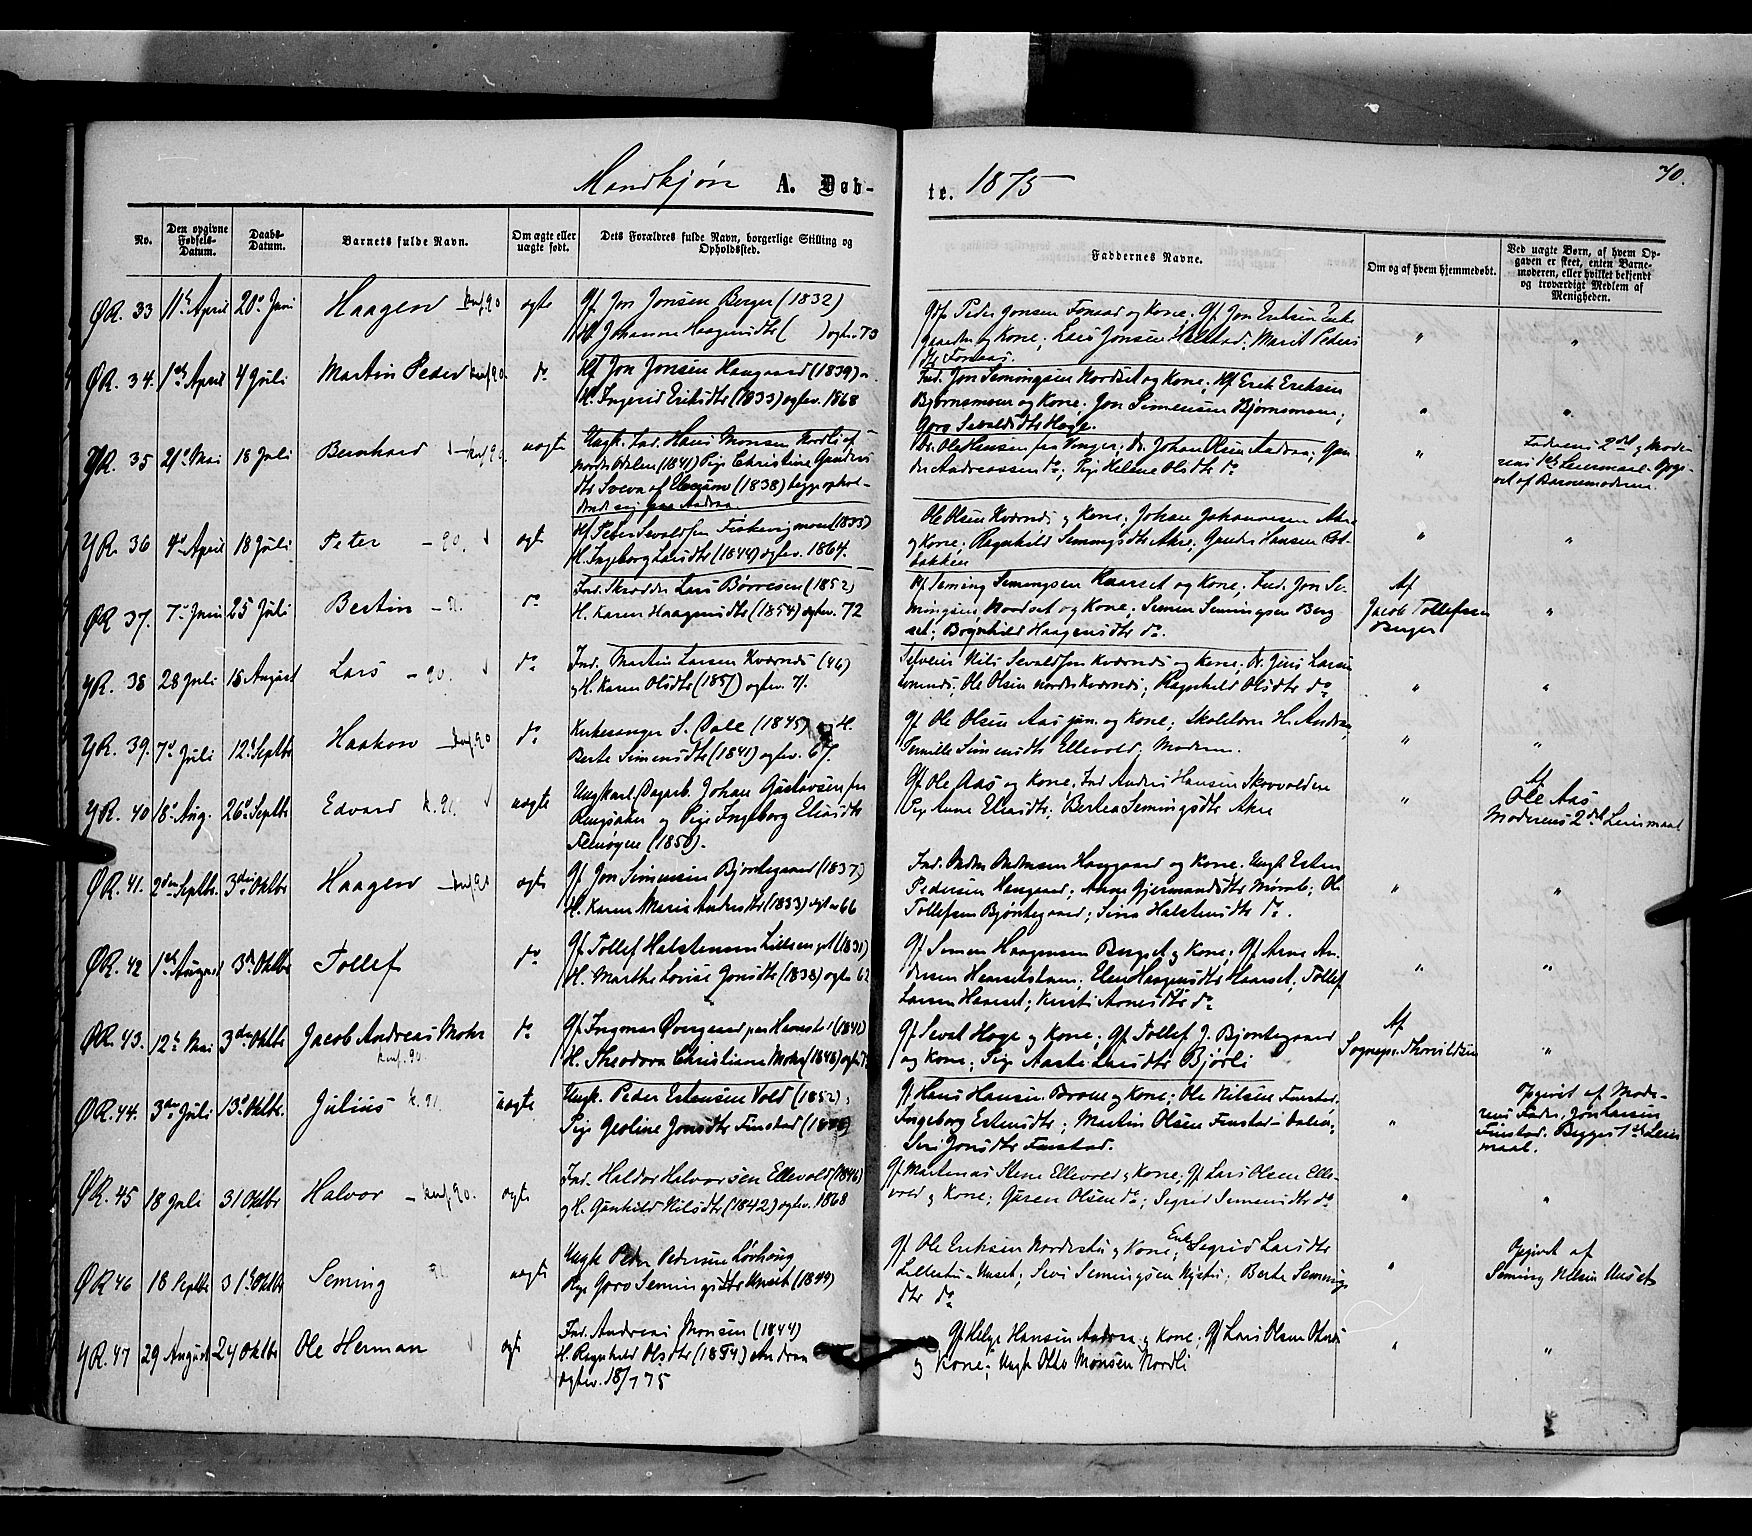 70.
Mandkjøn A. Døb-
te. 1875
No.
Den opgivne Fødsels-Datum.
Daabs-Datum.
Barnets fulde Navn.
Om ægte eller uægte født.
Dets Forældres fulde Navn, borgerlige Stilling og Opholdssted.
Faddernes Navne.
Om og af hvem hjemmedøbt.
Ved uægte Børn, af hvem Op-
gaven er skeet, enten Barne-
moderen, eller hvilket bekjendt
og troværdigt Medlem af
Menigheden.
ØR. 33 11te April 20de Juni Haagen konf. 90 ægte
Gf. Jon Jonsen Berger (1832)
H. Johanne Haagensdtr ( ) ægtev. 73
Gf. Peder Jonsen Fonaas og Kone; Gf. Jon Eriksen
og Kone; Lars Jonsen; Marit Peders
dtr Fonaas.
ØR. 34. 1ste April 4 Juli Martin Peder konf. 90. do
Hf. Jon Jonsen Haugaard (1839)
H. Ingerid Eriksdtr (1833) ægtev. 1868
Ind. Jon Semingsen Nordset og Kone; Hf. Erik Eriksen
Bjørnsmoen og Kone; Jon Simensen Bjørnsmoen;
Goro Sevaldsdtr Hoge.
YR. 35 21de Mai 18 Juli Bernhard konf. 90. uægte
Ungk. Ind. Hans Monsen Nordli af
Nordre Odalen (1841) Pige Christine Gunders
dtr af Elverum (1838) begge ophol-
dende sig paa Andraa.
Ole Hansen fra Vinger; Johan Olsen Andraa; Gun
der Andreassen do; Pige Helene Olsdtr do
Faderens 2det og Mode-
rens 1ste Leiermaal. Opgi-
vet af Barnemoderen.
YR. 36 4de April 18 Juli Peter - 90. ægte
Hf. Peter Sevaldsen Fiskvigmoen (1835)
H. Ingeborg Larsdtr (1844) ægtev. 1864.
Ole Olsen Kværnes og Kone; Johan Johannesen Akre
og Kone; Ragnhild Semingsdtr Akre; Gunder Hansen
bakken
ØR 37. 7de Juni 25 Juli Bertin do
Ind. Skrædder Lars Børresen (1852)
H. Karen Haagensdtr (1854) ægtev. 72
Hf. Seming Semingsen Haarset og Kone; Ind. Jon Se-
mingsen Nordset og Kone; Simen Semingsen Berg
set; Bognhild Haagensdtr do.
Af
Jacob Tollefsen
Berger
YR. 38 28 Juli 15 August Lars - 90. do
Ind. Martin Larsen Kværnes (46)
og H. Karen Olsdtr (1851) ægtev. 71.
Selveier Nils Sevaldsen Kværnes og Kone; Jens Larsen
Ole Olsen Nordre Kværnes; Ragnhild Olsdtr do
YR. 39. 7de Juli 12te Septbr Haakon konf. 90 do
Kirkesanger S. Dale (1845) og H.
Berte Simensdtr (1841) ægtev. 67.
Gf. Ole Olsen Aas jun. og Kone; Skolelærer H. Andraa,
Pernille Simensdtr Ellevold; Moderen.
YR. 40 18de Aug. 26de Septbr Edvard k. 91. uægte
Ungkarl Dagarb. Johan Gustavsen fra
Ringsaker og Pige Ingeborg Eliasdtr
(1850).
Gf. Ole Aas og Kone; Ind. Anders Hansen Skovvolden
Pige Anne Eliasdtr; Berthea Semingsdtr Akre
Af
Ole Aas
Moderens 2det Leiermaal
ØR. 41. 2den Septbr. 3die Oktbr Haagen konf. 90 ægte
Gf. Jon Simensen Bjøntegaard (1837)
H. Karen Marie Andersdtr (1833) ægtev 66
Pedersen Haugaard; Anne Gjermundsdtr Mømb; Ole
Tollefsen Bjøntegaard; Siri Halstensdtr do.
ØR. 42 1ste August 3die Oktbr Tollef do
Gf. Tollef Halstensen (1831)
H. Marthe Lovise Jonsdtr (1838) ægtev 62
Gf. Simen Haagensen Bergset og Kone; Gf. Arne An-
dersen; Elen Haagensdtr Haarset; Tollef
Larsen Haarset; Kirsti Arnesdtr do
ØR. 43. 12te Mai 3die Oktbr Jacob Andreas Mohr konf. 90. do
Gf. Ingmar Øvergaard (1841)
H. Theodora Christiane Mohr (1848)
Gf. Sevat Hoge og Kone; Gf. Tollef J. Bjøntegaard
og Kone; Pige Aaste Larsdtr Bjørli
Af
Sognepr. Thorvildsen
ØR. 44. 3die Juli 13de Oktbr. Julius k. 91. uægte
Ungk. Peder Estensen Vold (1852);
Pige Geoline Jonsdtr Finstad
Gf. Hans Hansen Broen og Kone; Ole Nilsen Finstad,
Ingeborg Estensdtr; Martin Olsen Finstad-dalen;
Siri Jonsdtr Finstad.
Opgivet af Mode-
rens Fader, Jon Larsen
Finstad. Begges 1ste Leier
maal.
ØR. 45 18 Juli 31 Oktbr Halvor - konf. 90. ægte
Ind. Haldor Halvorsen Ellevold (1846)
og H. Gunhild Nilsdtr (1842) ægtev. 1868
Gf. Martinus Stene Ellevold og Kone; Gf. Lars Olsen Elle-
vold og Kone; Guren Olsen do; Segrid Simensdtr do
ØR 46 18 Septbr 31te Oktbr Seming uægte
Ungk Peder Pedersen Løvhoug
Pige Goro Semingsdtr Unset (1849)
Gf. Ole Eriksen Nordestu og Kone; Enke Segrid Larsdtr
Lillestu-Unset; Sevi Semingsen Nystu; Berte Semings
dtr do
Opgivet af
Seming Nilsen Unset
YR. 47 29 August 24 Oktbr Ole Herman ægte
Ind. Andreas Monsen (1844)
H. Ragnhild Olsdtr (1854) Andraa
ægtev. 18/7 75
Gf. Helge Hansen Andraa og Kone; Gf Lars Olsen
og Kone; Ungk Otto Monsen Nordli